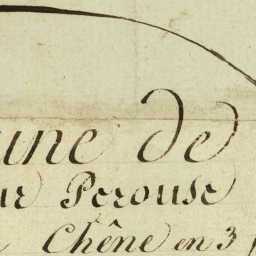 une de
ur Perouse
Chêne en 3